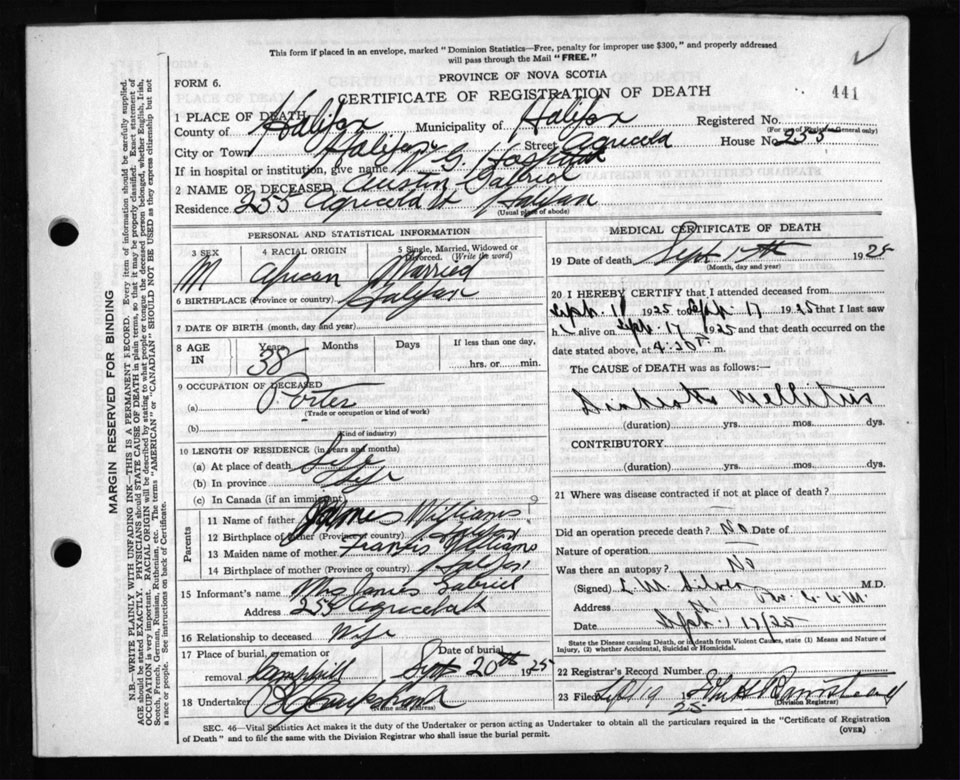 This form if placed in an envelope, marked "Dominion Statistics—Free, penalty for improper use $300," and properly addressed
will pass through the Mail "FREE."
FORM 6.
PROVINCE OF NOVA SCOTIA
CERTIFICATE OF REGISTRATION OF DEATH
441
1 PLACE OF DEATH
County of Halifax Municipality of Halifax Registered No.
(For use of Registrar General only)
City or Town Halifax Street Agricola House No. 255
If in hospital or institution, give name V. G. Hospital
2 NAME OF DECEASED Austin Gabriel
Residence 255 Agricola St Halifax
(Usual place of abode)
PERSONAL AND STATISTICAL INFORMATION
3 SEX 4 RACIAL ORIGIN 5 Single, Married, Widowed or Divorced. (Write the word)
M African Married
6 BIRTHPLACE (Province or country) Halifax
7 DATE OF BIRTH (month, day and year)
8 AGE IN Years Months Days If less than one day,
38 hrs. or min.
9 OCCUPATION OF DECEASED
(a) Porter
(Trade or occupation or kind of work)
(b)
(Kind of industry)
10 LENGTH OF RESIDENCE (in years and months)
(a) At place of death Life
(b) In province Life
(c) In Canada (if an immigrant)
Parents
11 Name of father James Williams ?
12 Birthplace of father (Province or country) Halifax
13 Maiden name of mother Francis Williams
14 Birthplace of mother (Province or country) Halifax
15 Informant's name Mrs James Gabriel
Address 255 Agricola St
16 Relationship to deceased Wife
17 Place of burial, cremation or removal Camphill Date of burial Sept 20th 1925
18 Undertaker
(Name and address)
MEDICAL CERTIFICATE OF DEATH
19 Date of death Sept 17th 1925
(Month, day and year)
20 I HEREBY CERTIFY that I attended deceased from
Sept. 11 1925 to Sept 17 1925 that I last saw
h alive on Sept. 17 1925 and that death occurred on the
date stated above, at 4:20 P. m.
The CAUSE of DEATH was as follows:—
Diabetes Mellitus
(duration) yrs. mos. dys.
CONTRIBUTORY
(duration) yrs. mos. dys.
21 Where was disease contracted if not at place of death?
Did an operation precede death? No Date of
Nature of operation
Was there an autopsy? No
(Signed) L. M. Silver M.D.
Address
Date Sept. 17/25
State the Disease causing Death, or in death from Violent Causes, state (1) Means and Nature of
Injury, (2) whether Accidental, Suicidal or Homicidal.
22 Registrar's Record Number
23 Filed 1925
(Division Registrar)
SEC. 46—Vital Statistics Act makes it the duty of the Undertaker or person acting as Undertaker to obtain all the particulars required in the "Certificate of Registration
of Death" and to file the same with the Division Registrar who shall issue the burial permit.
(OVER)
MARGIN RESERVED FOR BINDING
N.B.—WRITE PLAINLY WITH UNFADING INK—THIS IS A PERMANENT RECORD. Every item of information should be carefully supplied.
AGE should be stated EXACTLY. PHYSICIANS should STATE CAUSE OF DEATH in plain terms, so that it may be properly classified. Exact statement of
OCCUPATION is very important. RACIAL ORIGIN will be described by stating to what people or tongue the deceased person belonged, whether English, Irish,
Scotch, French, German, Russian, Ruthenian, etc. The terms "AMERICAN" or "CANADIAN" SHOULD NOT BE USED as they express citizenship but not
a race or people. See instructions on back of Certificate.